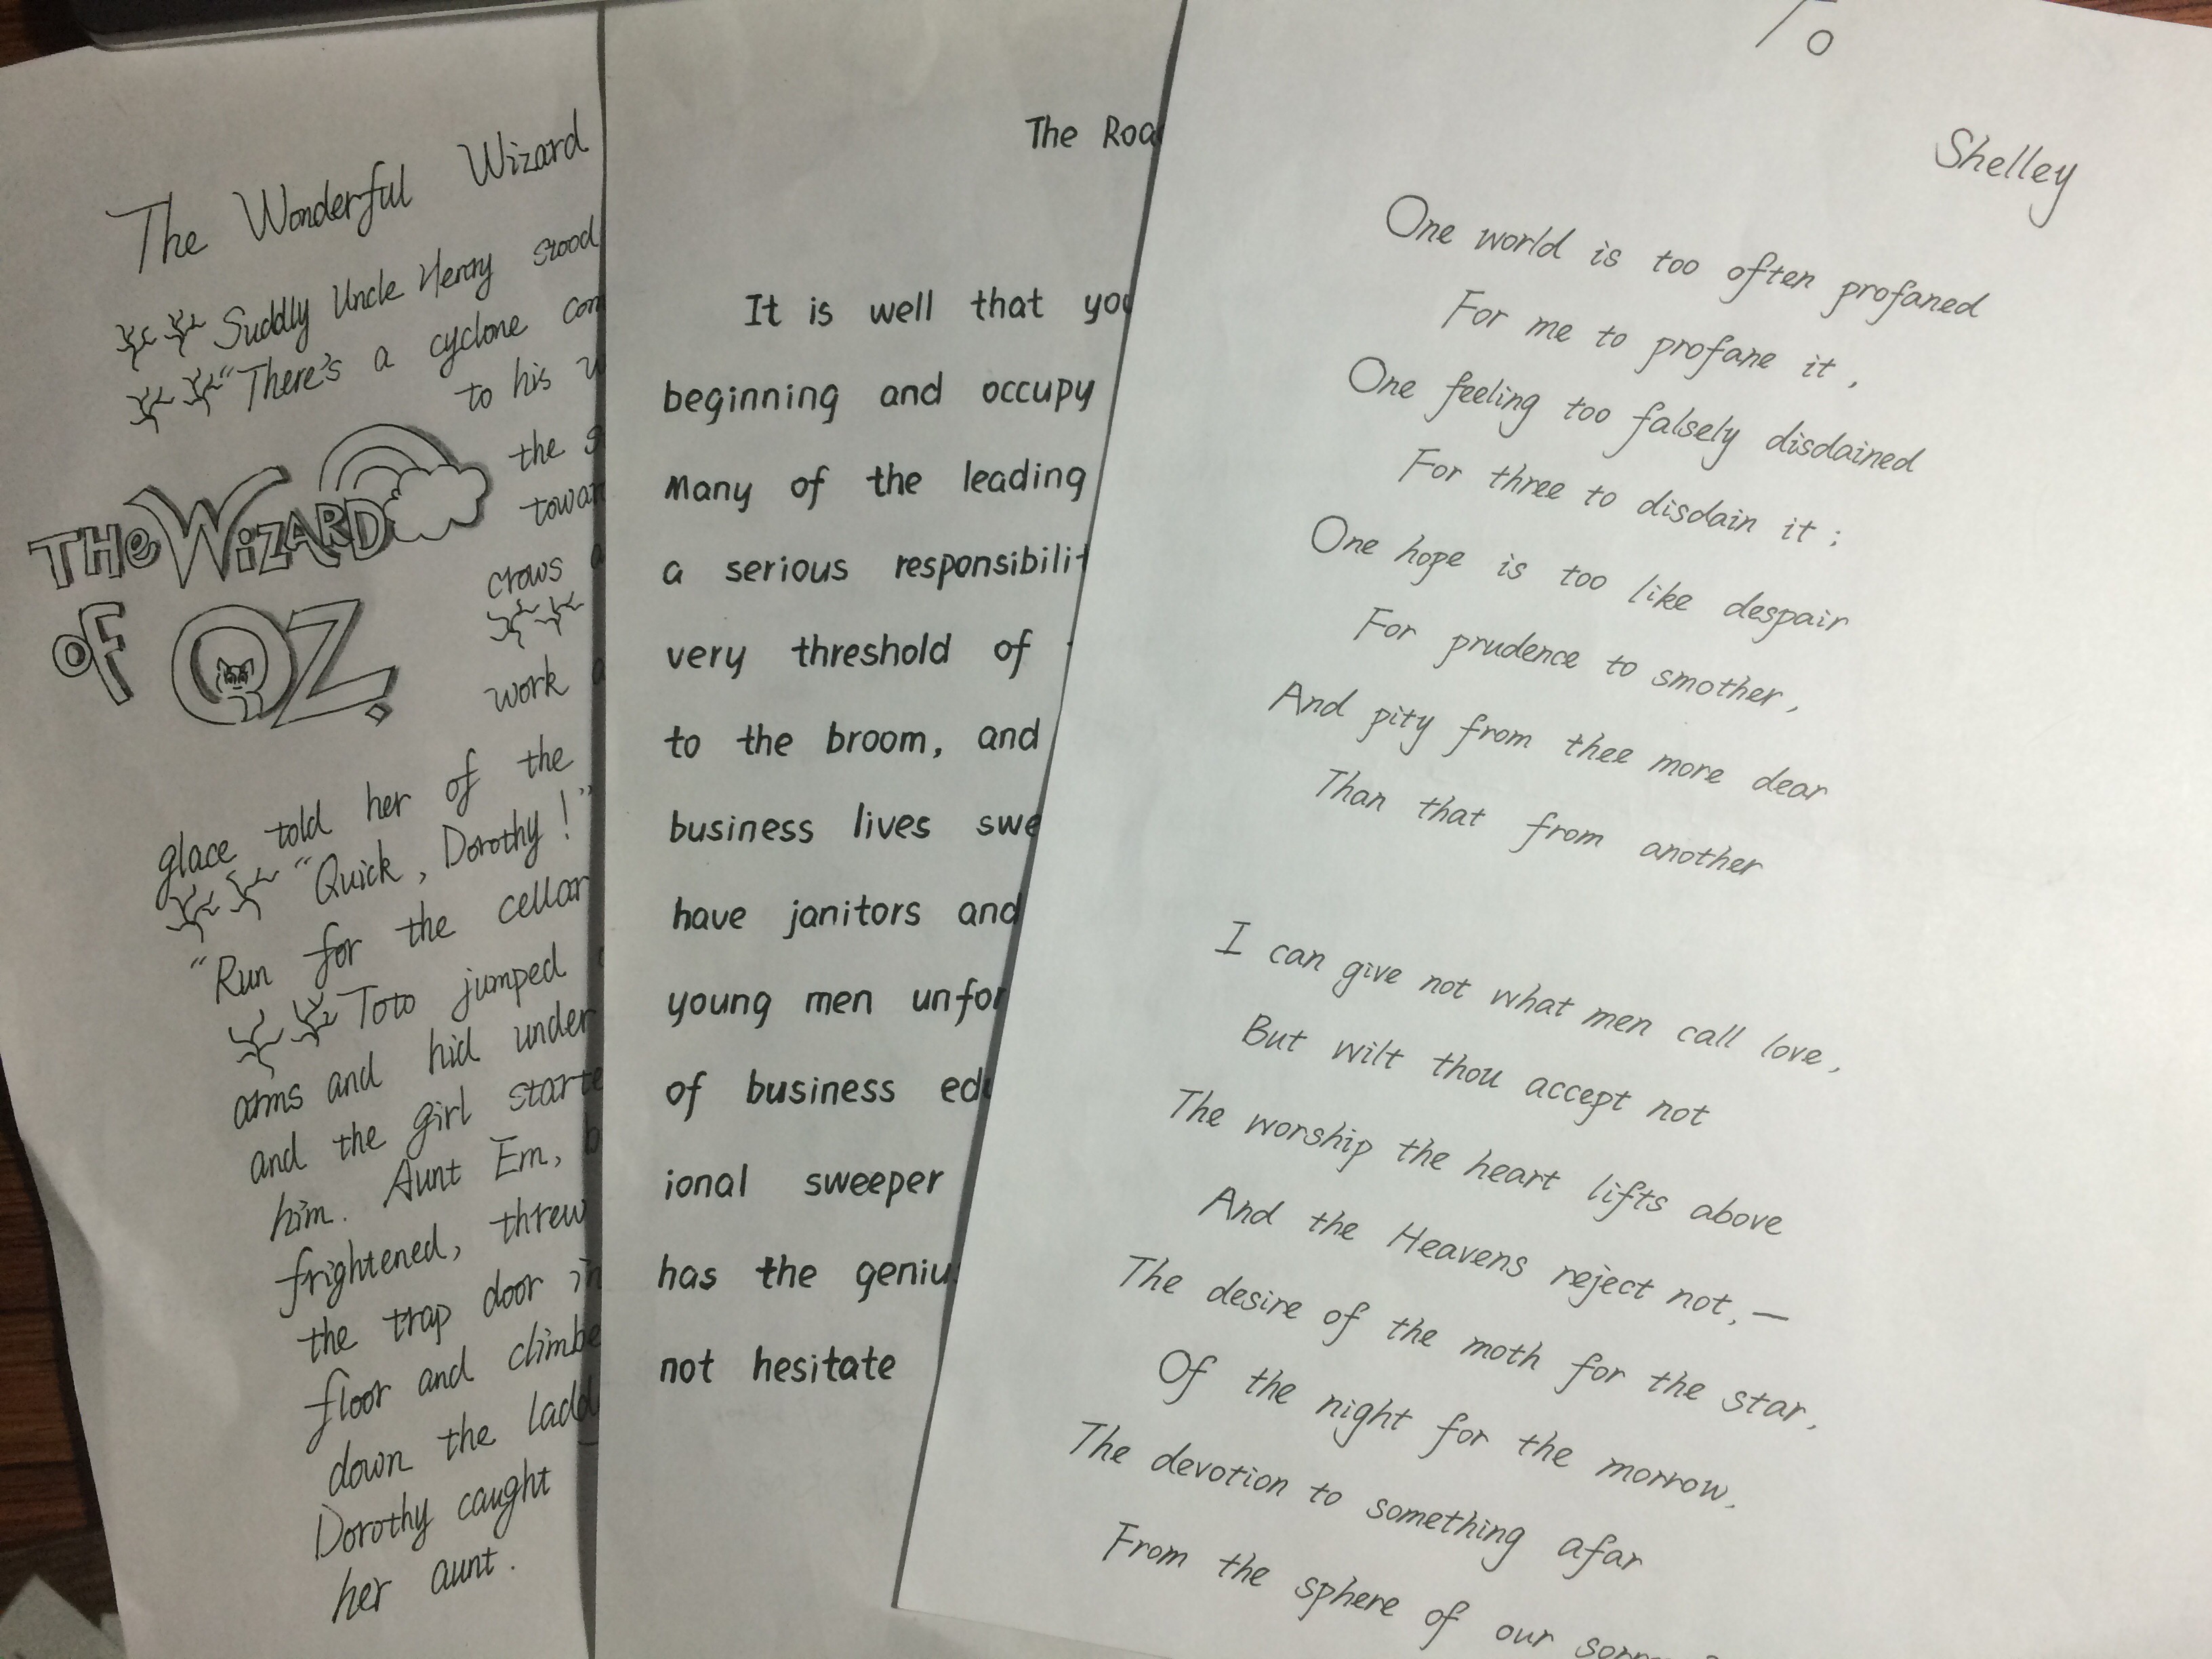 The Wonderful Wizard
Suddly Uncle Henry stood
"There's a cyclone
to his
the
crows
work
THe WIZARD
of OZ.
glace told her of the
"Quick, Dorothy!"
"Run for the cellar
Toto jumped
arms and hid under
and the girl
him. Aunt Em,
frightened, threw
the trap door
floor and
down the
Dorothy caught
her aunt.
The
It is well that
beginning and occupy
Many of the leading
a serious
very threshold of
to the broom, and
business lives
have janitors and
young men
of business
ional sweeper
has the
not hesitate
To
Shelley
One world is too often profaned
For me to profane it,
One feeling too falsely disdained
For three to disdain it;
One hope is too like despair
For prudence to smother,
And pity from thee more dear
Than that from another
I can give not what men call love,
But wilt thou accept not
The worship the heart lifts above
And the Heavens reject not,—
The desire of the moth for the star,
Of the night for the morrow,
The devotion to something afar
From the sphere of our